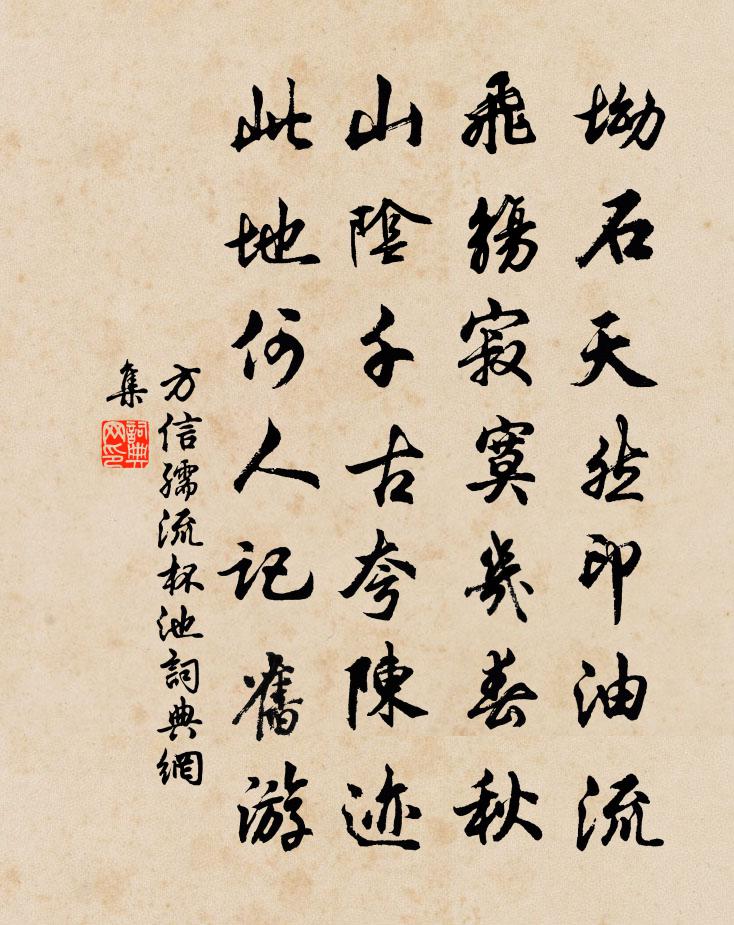 坳石天然印油流
飛觴寂寞幾春秋
山陰千古夸陳迹
此地何人記舊游
方信孺流杯池詞典網
集
詞典網印